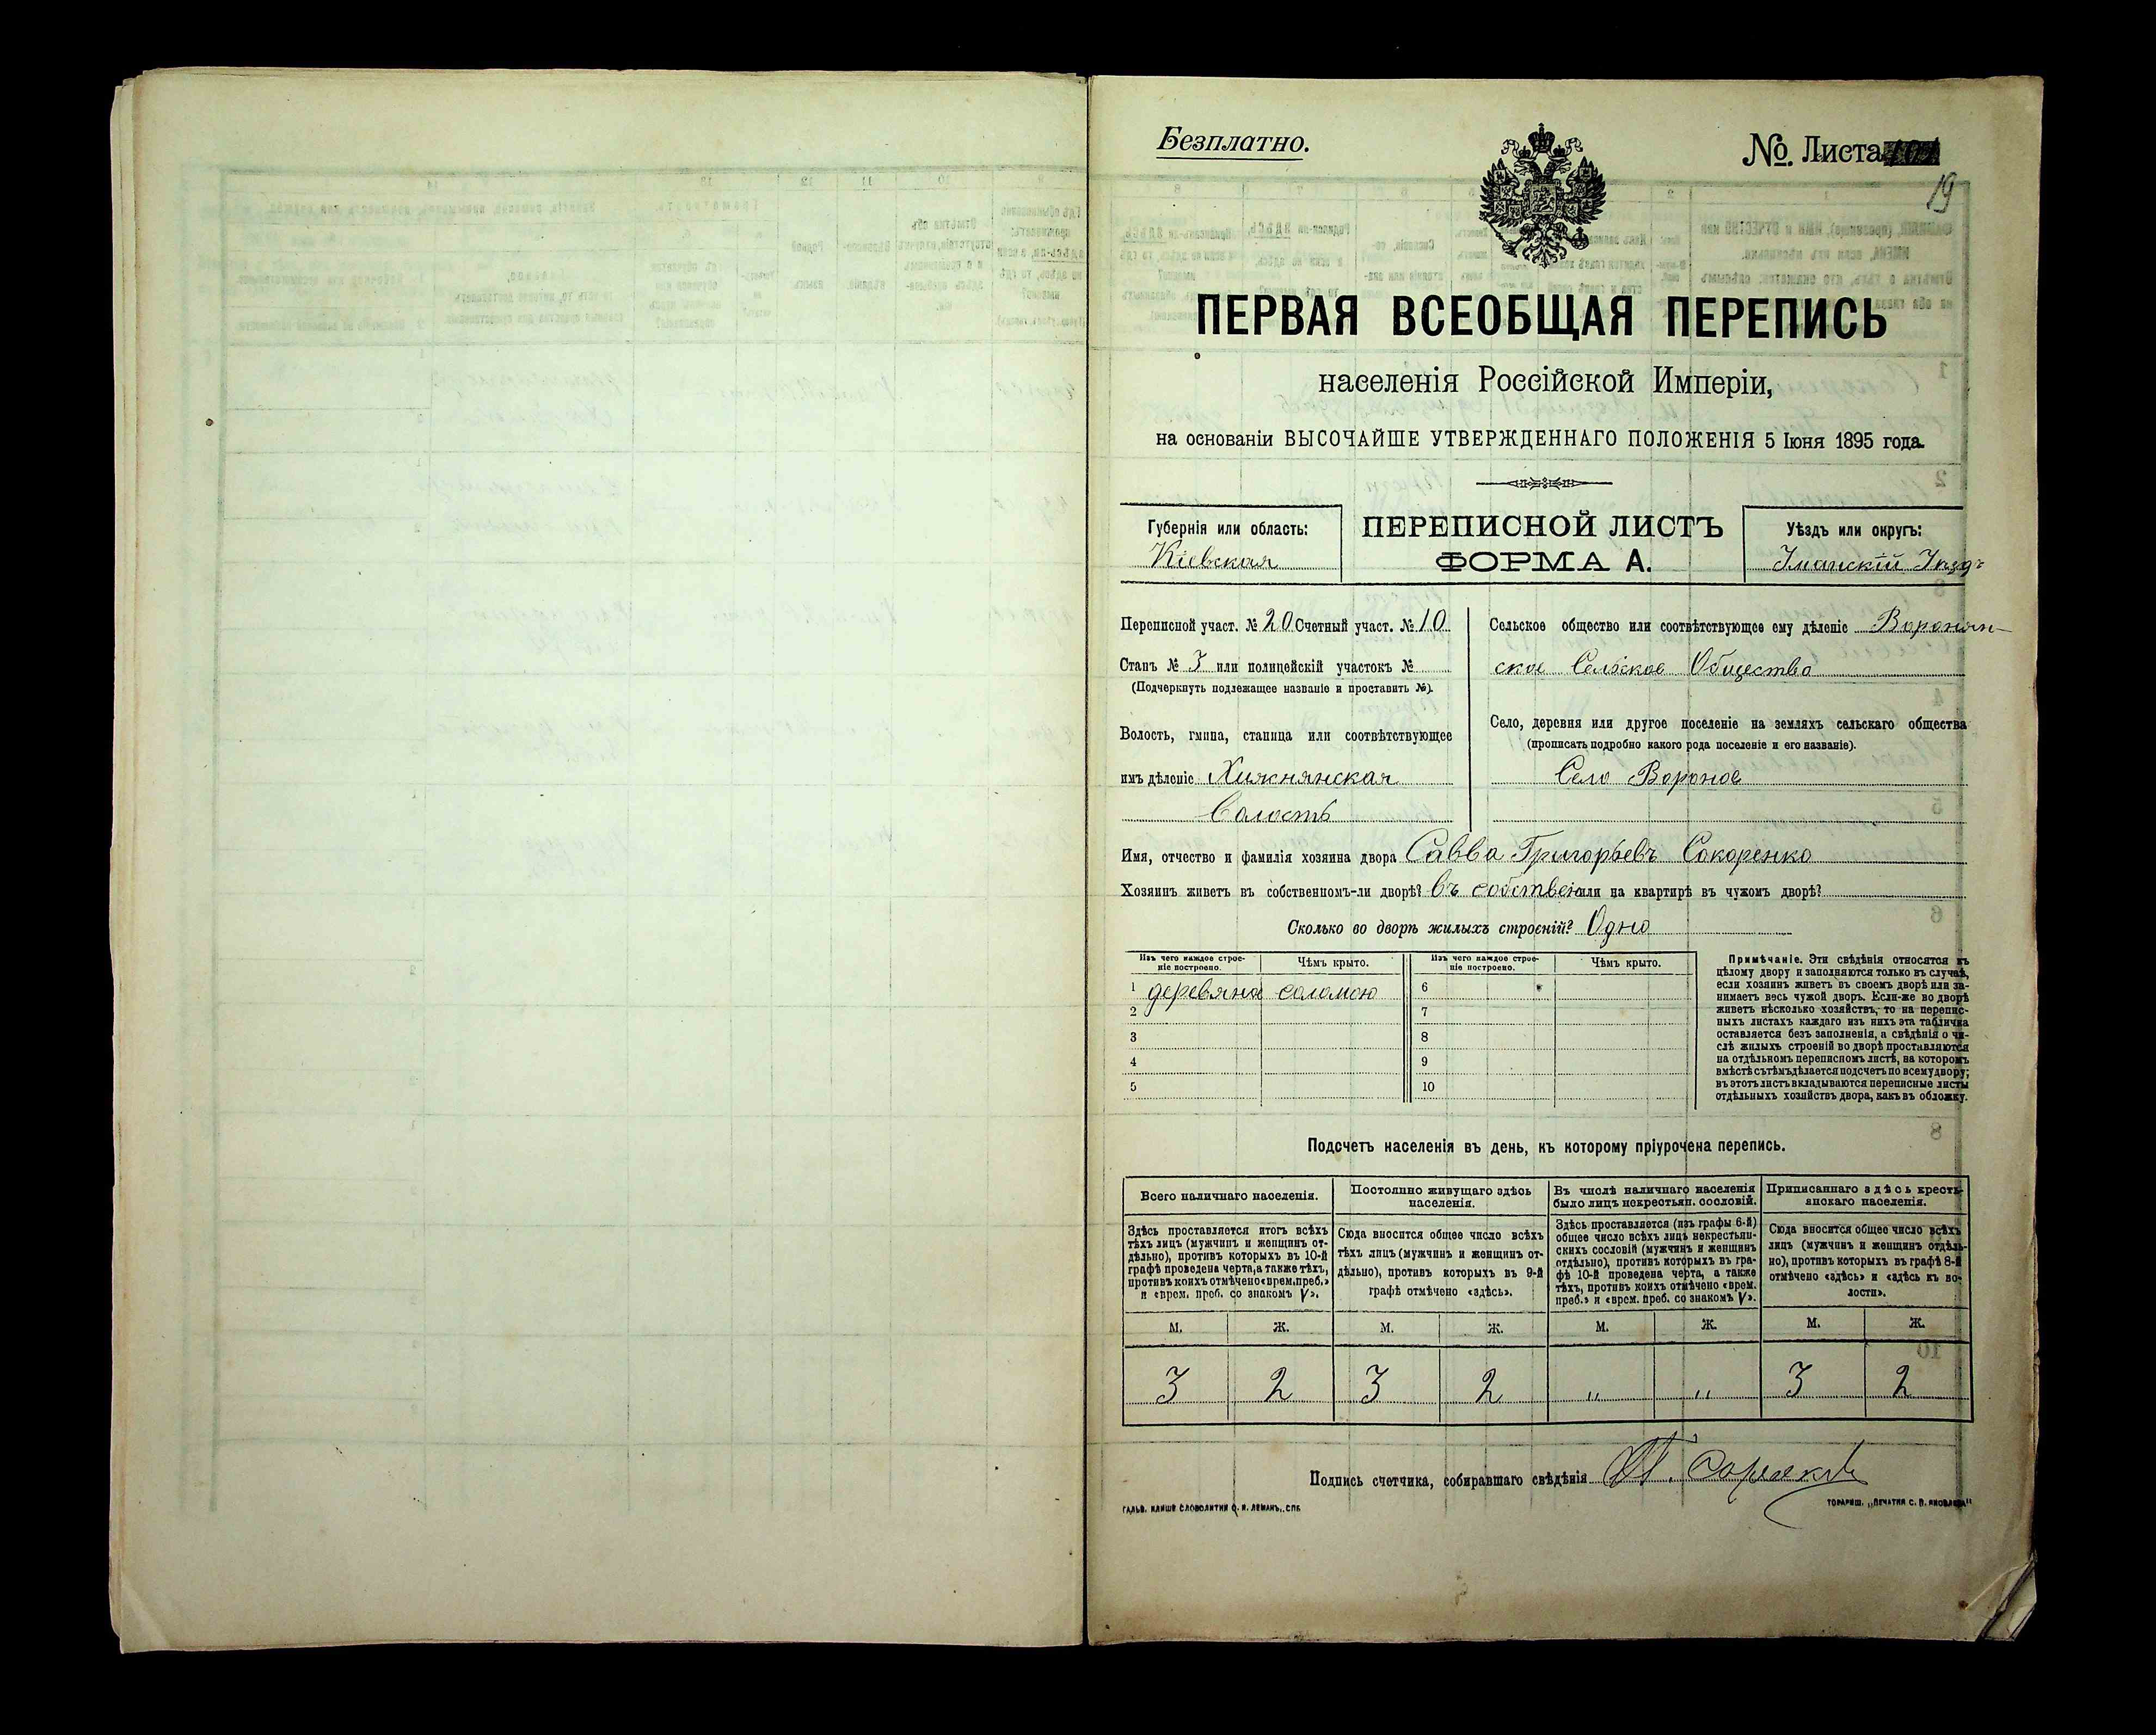 Безплатно.
№. Листа
19
ПЕРВАЯ ВСЕОБЩАЯ ПЕРЕПИСЬ
населенія Россійской Имперіи,
на основаніи ВЫСОЧАЙШЕ УТВЕРЖДЕННАГО ПОЛОЖЕНІЯ 5 Іюня 1895 года.
Губернія или область:
Кіевская
ПЕРЕПИСНОЙ ЛИСТЪ
ФОРМА А.
Уѣздъ или округъ:
Уманскій Уѣздъ
Переписной участ. № 20 Счетный участ. № 10
Станъ № 3 или полицейскій участокъ №
(Подчеркнуть подлежащее названіе и проставить №).
Волость, гмина, станица или соотвѣтствующее
имъ дѣленіе Хижнянская
Волость
Сельское общество или соотвѣтствующее ему дѣленіе Воронян-
ское Сельское Общество
Село, деревня или другое поселеніе на земляхъ сельскаго общества
(прописать подробно какого рода поселеніе и его названіе).
Село Вороное
Имя, отчество и фамилія хозяина двора Савва Григорьевъ Сокоренко
Хозяинъ живетъ въ собственномъ-ли дворѣ? въ собствен или на квартирѣ въ чужомъ дворѣ?
Сколько во дворѣ жилыхъ строеній? Одно
Изъ чего каждое строе-
ніе построено.
Чѣмъ крыто.
Изъ чего каждое строе-
ніе построено.
Чѣмъ крыто.
1 деревяное соломою 6
2 7
3 8
4 9
5 10
Примѣчаніе. Эти свѣдѣнія относятся къ
цѣлому двору и заполняются только въ случаѣ,
если хозяинъ живетъ въ своемъ дворѣ или за-
нимаетъ весь чужой дворъ. Если-же во дворѣ
живетъ нѣсколько хозяйствъ, то на перепис-
ныхъ листахъ каждаго изъ нихъ эта табличка
оставляется безъ заполненія, а свѣдѣнія о чи-
слѣ жилыхъ строеній во дворѣ проставляются
на отдѣльномъ переписномъ листѣ, на которомъ
вмѣстѣ съ тѣмъ дѣлается подсчетъ по всему двору;
въ этотъ листъ вкладываются переписные листы
отдѣльныхъ хозяйствъ двора, какъ въ обложку.
Подсчетъ населенія въ день, къ которому пріурочена перепись.
Всего наличнаго населенія.
Постоянно живущаго здѣсь
населенія.
Въ числѣ наличнаго населенія
было лицъ некрестьян. сословій.
Приписаннаго здѣсь кресть-
янскаго населенія.
Здѣсь проставляется итогъ всѣхъ
тѣхъ лицъ (мужчинъ и женщинъ от-
дѣльно), противъ которыхъ въ 10-й
графѣ проведена черта, а также тѣхъ,
противъ коихъ отмѣчено «врем. преб.»
и «врем. преб. со знакомъ V».
Сюда вносится общее число всѣхъ
тѣхъ лицъ (мужчинъ и женщинъ от-
дѣльно), противъ которыхъ въ 9-й
графѣ отмѣчено «здѣсь».
Здѣсь проставляется (изъ графы 6-й)
общее число всѣхъ лицъ некрестьян-
скихъ сословій (мужчинъ и женщинъ
отдѣльно), противъ которыхъ въ гра-
фѣ 10-й проведена черта, а также
тѣхъ, противъ коихъ отмѣчено «врем.
преб.» и «врем. преб. со знакомъ V».
Сюда вносится общее число всѣхъ
лицъ (мужчинъ и женщинъ отдѣль-
но), противъ которыхъ въ графѣ 8-й
отмѣчено «здѣсь» и «здѣсь къ во-
лости».
М. Ж. М. Ж. М. Ж. М. Ж.
3 2 3 2 " " 3 2
Подпись счетчика, собиравшаго свѣдѣнія
ГАЛЬВ. КЛИШЕ СЛОВОЛИТНИ О. И. ЛЕМАНЪ, СПБ.
ТОВАРИЩ. „ПЕЧАТНЯ С. П. ЯКОВЛЕВА"